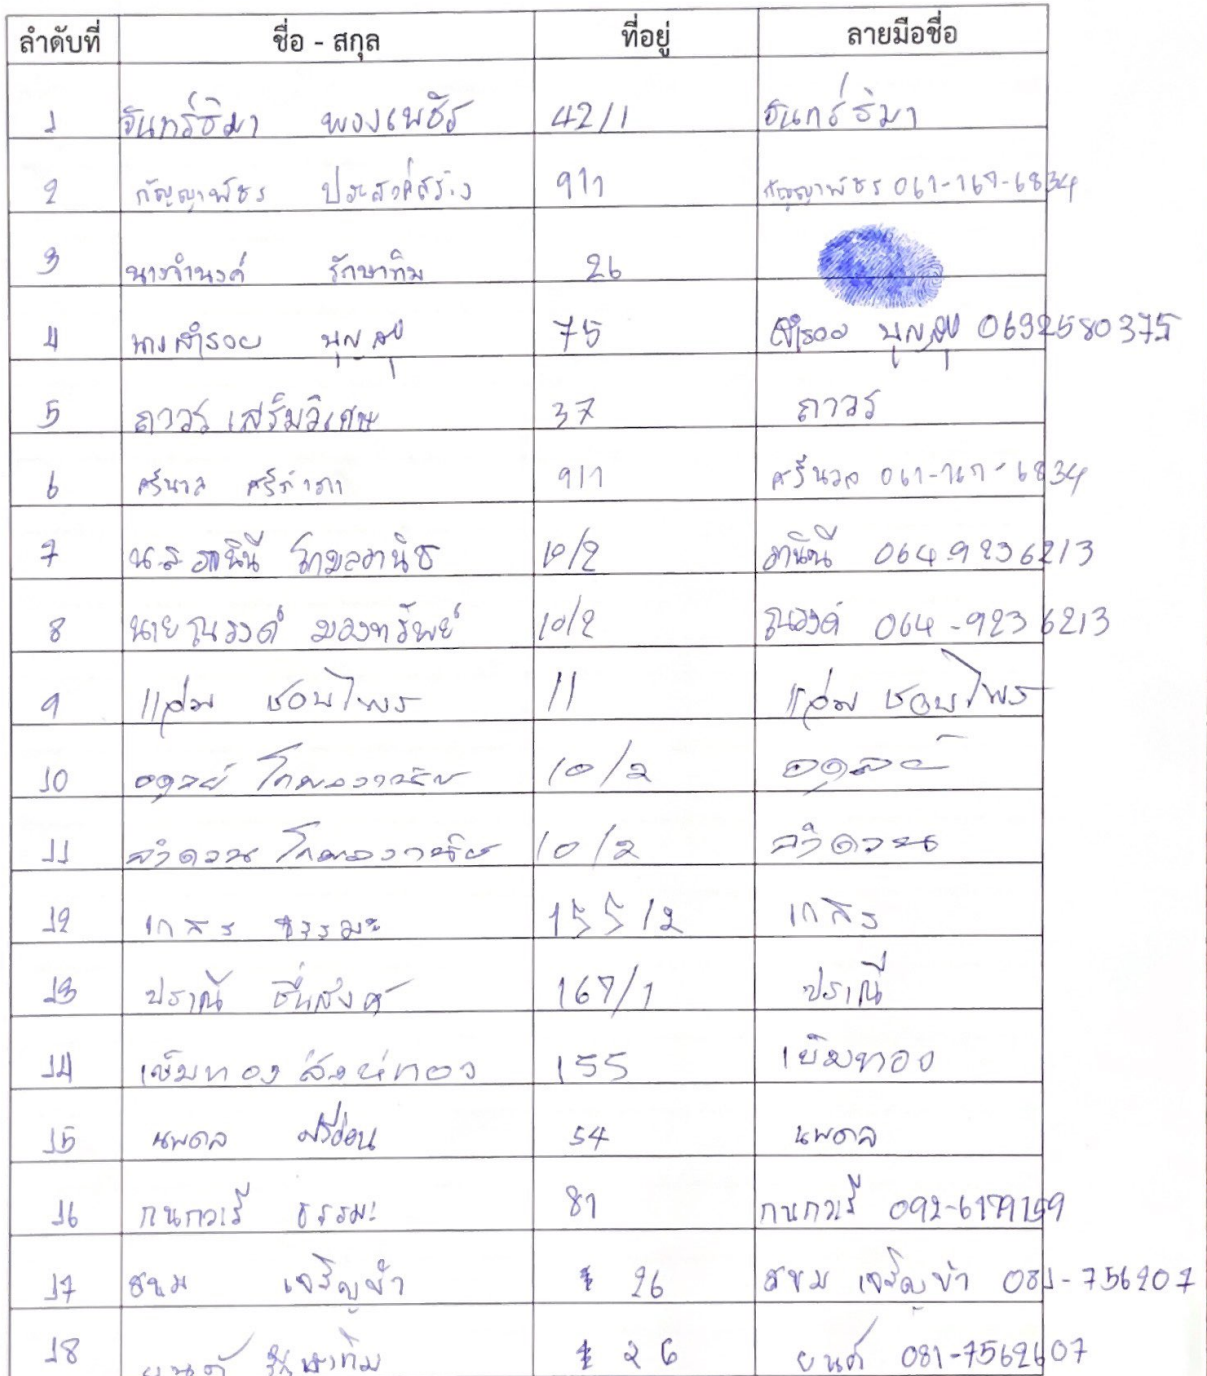 ลำดับที่ ชื่อ - สกุล ที่อยู่ ลายมือชื่อ
1 จันทร์ธิมา พวงเพชร 42/1 จันทร์ธิมา
2 กัญญาพัชร ประสงค์สร้าง 911 กัญญาพัชร 061-167-6834
3 นางจำนงค์ รักษาทิม 26
4 นางสำรอย บุญ 75 สำรอย บุญ 0632580375
5 ถาวร เสริมวิเศษ 37 ถาวร
6 ศรีนวล 911 ศรีนวล 061-167-6834
7 น.ส. ภานินี โกมลวานิช 10/2 ภานินี 064-9236213
8 นายณรงค์ มองทรัพย์ 10/2 ณรงค์ 064-9236213
9 แส่ม ชอบไพร 11 แส่ม ชอบไพร
10 อดุลย์ โกมลวานิช 10/2 อดุลย์
11 ลำดวน โกมลวานิช 10/2 ลำดวน
12 เกสร ธรรมะ 155/2 เกสร
13 ปราณี ชื่นสงค์ 167/1 ปราณี
14 เข็มทอง สิงห์ทอง 155 เข็มทอง
15 นพดล ศรีอ่อน 54 นพดล
16 กนกวรี ธรรมะ 81 กนกวรี 092-6179199
17 เจริญขำ 26 เจริญขำ 081-756207
18 รักษาทิม 26 081-7562607